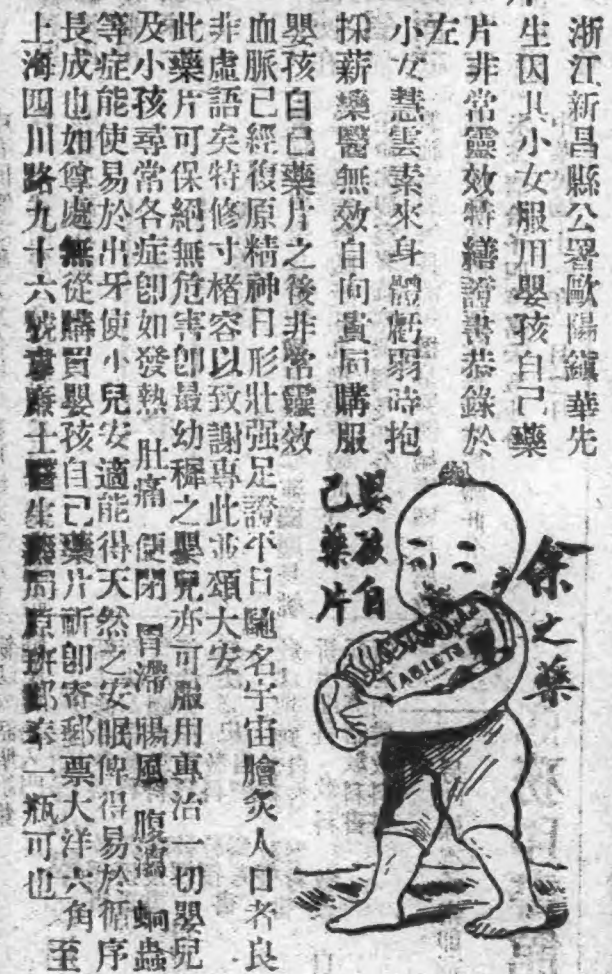 浙江新昌縣公署歐陽鎭華先
生因其小女服用嬰孩自己藥
片非常靈效特繕證書恭錄於
左
小女慧雲素來身體虧弱時抱
採薪藥醫無效自向貴局購服
嬰孩自己藥片之後非常靈效
血脈已經復原精神日形壯强足證平日馳名宇宙膾炙人口者良
非虛語矣特修寸楮容以致謝專此並頌大安
此藥片可保絕無危害卽最幼穉之嬰兒亦可服用專治一切嬰兒
及小孩尋常各症卽如發熱 肚痛 便閉 胃滯 腸風 腹瀉 蛔蟲
等症能使易於出牙使小兒安適能得天然之安眠俾得易於循序
長成也如尊處無從購買嬰孩自己藥片祈卽寄郵票大洋六角 至
上海四川路九十六號韋廉士醫生藥局原班郵奉一瓶可也
余之藥
嬰孩自
己藥片
TABLETS